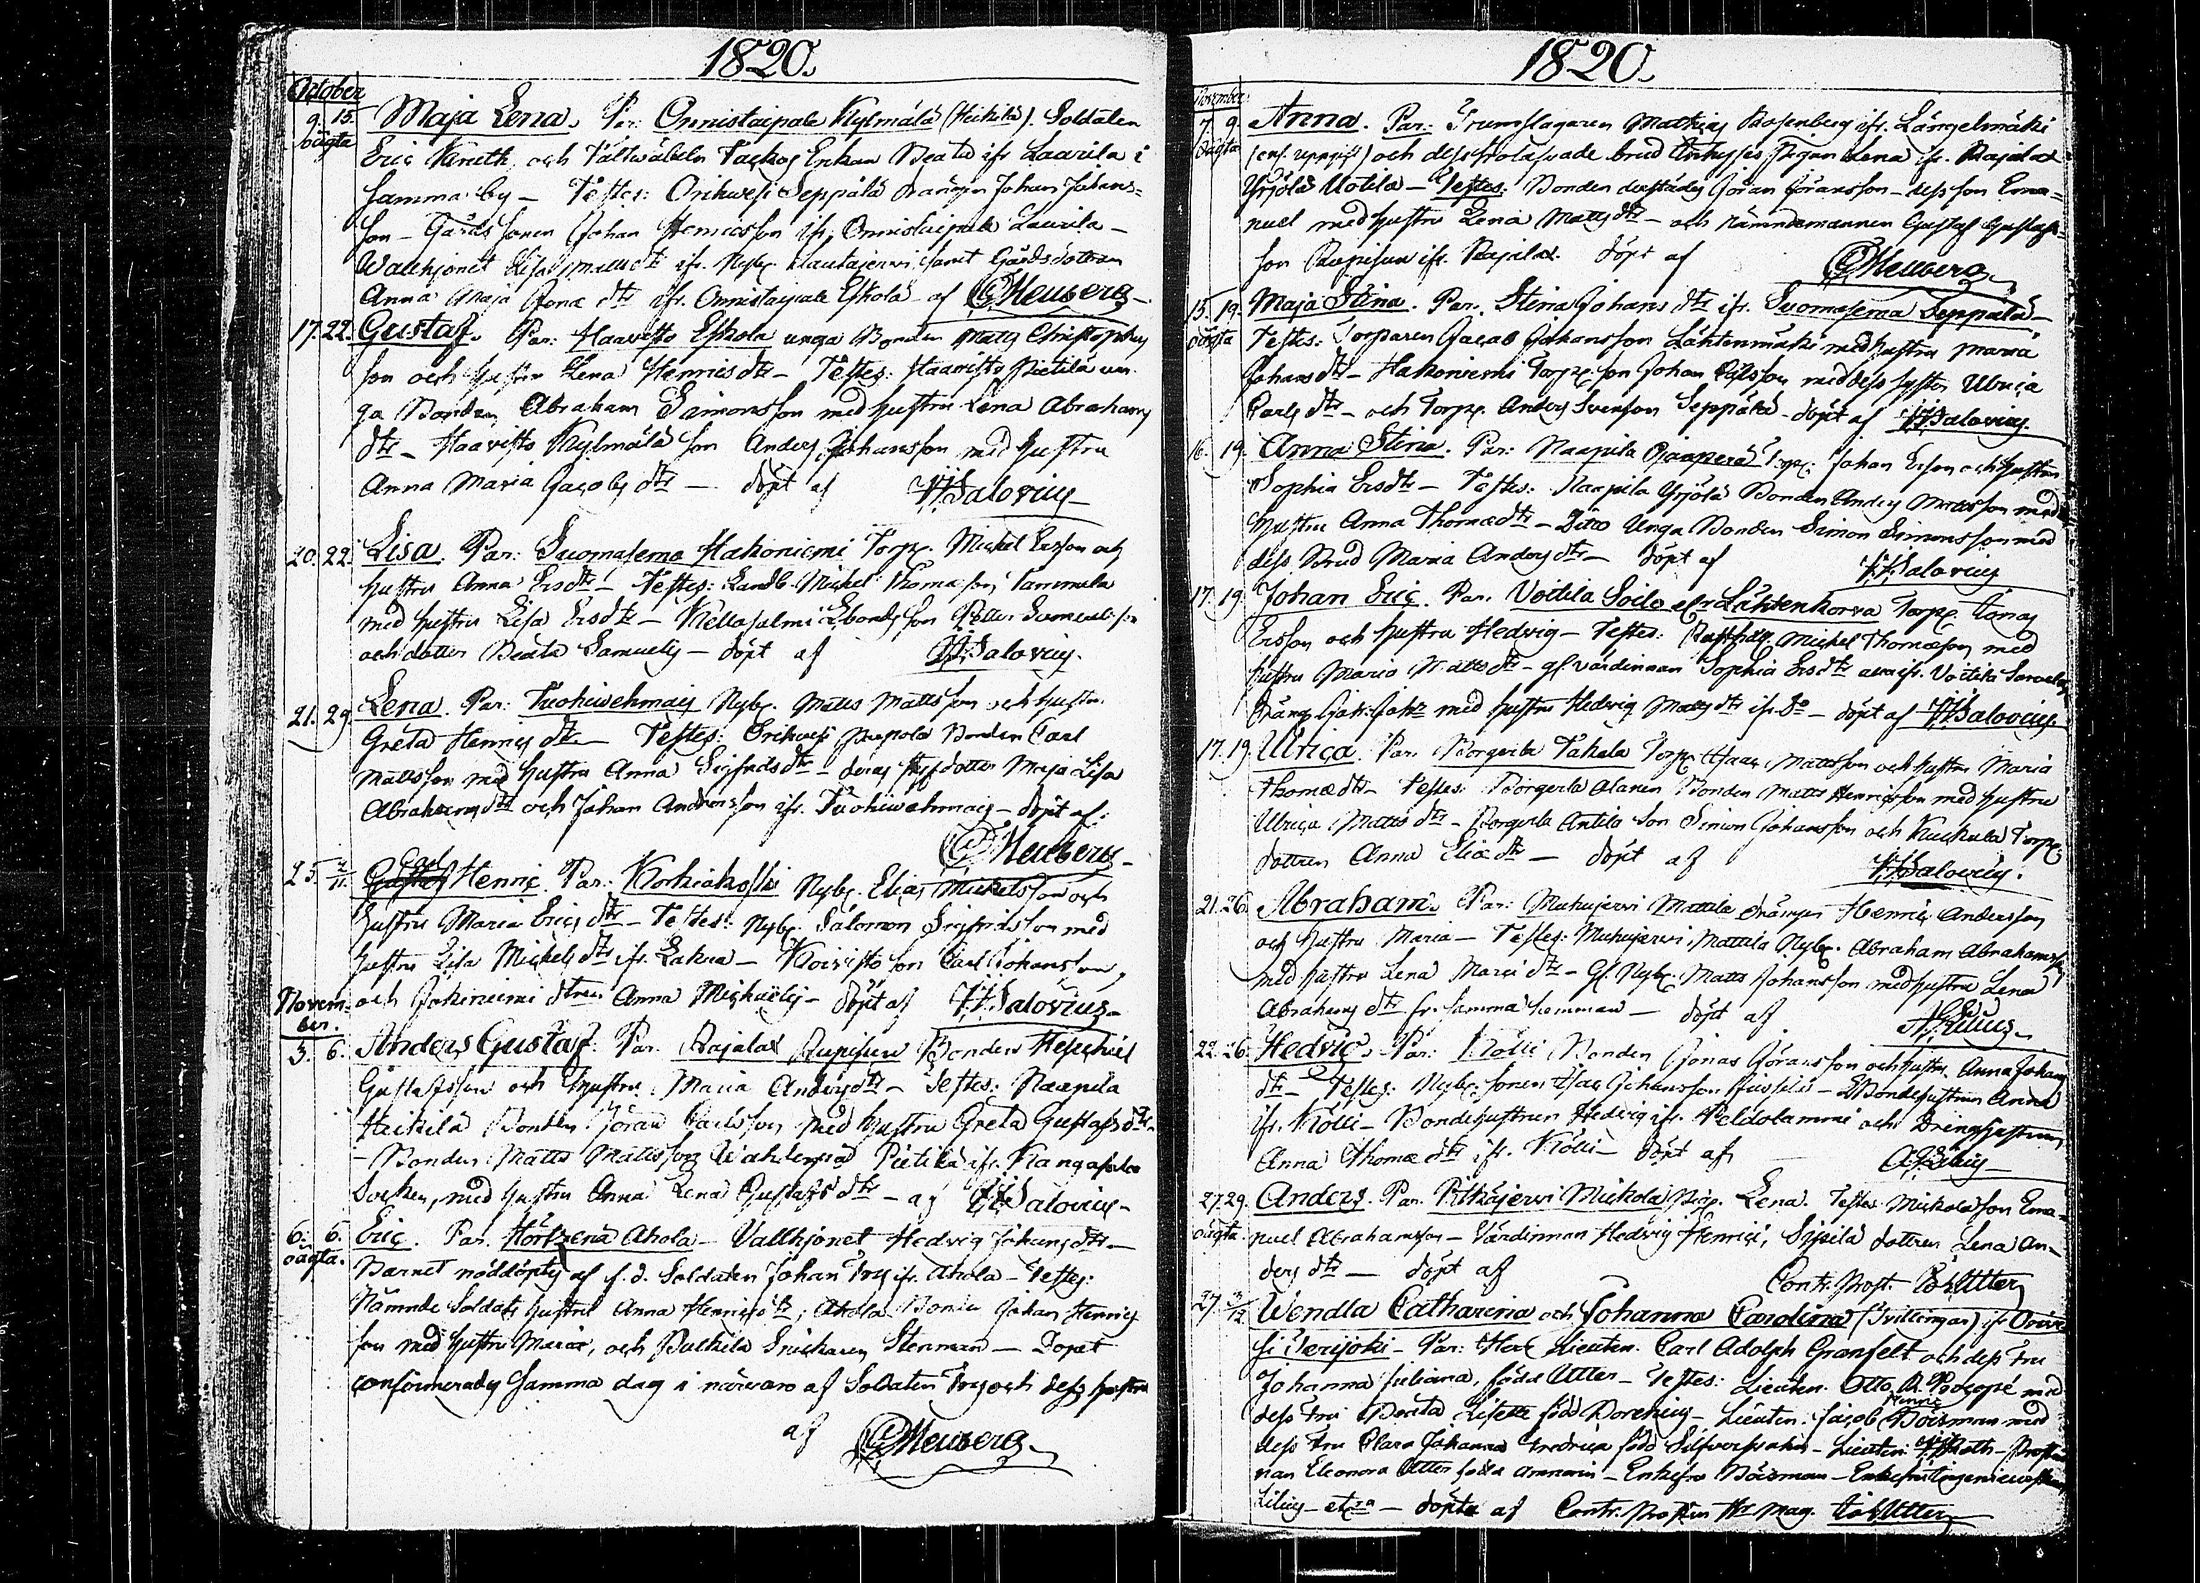 1820.
October
9. 15. Maja Lena. Par: Onnistaipale Kylmälä (Heikilä). Soldaten
oägta Eric Kneth och Enkan Beata ifr. Laurila i
samma by — Testes: Orihvesi Seppälä drängen Johan Johans=
son — Gårds sonen Johan Henricsson ifr. Onnistaipale Laurila —
Wallhjonet Lisa Matts dtr ifr. Nybg. Hautajerwi samt Gårdsdottren
Anna Maja Jonæ dtr ifr. Onnistaipale Eskola af Meuberg
17. 22. Gustaf. Par: Haavisto Eskola unga Bonden Matts Christophers
son och hustru Lena Henrics dtr — Testes: Haavisto Pietilä un
ga Bonden Abraham Simonsson med hustru Lena Abrahams
dtr — Haavisto Kylmälä son Anders Johansson med hustru
Anna Maria Jacobs dtr — döpt af Salovius
20. 22. Lisa. Par: Suomasema Hakoniemi Torp. Michel Ersson och
hustru Anna Ersdtr — Testes: Landb. Michel Thomasson Tammela
med hustru Lisa Ersdtr — Kellosalmi son Petter
och dotter Beata Samuels — döpt af Salovius.
21. 29 Lena. Par: Tuohiwehmais Nybg. Matts Mattsson och hustru
Greta Henrics dtr — Testes: Orihvesi Bonden Carl
Mattsson med hustru Anna Sigfrids dtr — deras styfdotter Maja Lisa
Abrahams dtr och Johan Andersson ifr. Tuohiwehmais — döpt af:
Meuberg
Carl
25. 2/11. Gustaf Henric. Par: Korkiakoski Nybg. Elias Mickelsson och
hustru Maria Erics dtr — Testes: Nybg. Salomon Sigfridsson med
hustru Lisa Michels dtr ifr. Lakua — Koivisto son Carl Johansson,
Novem= och Jokiniemi dtren Anna Michaëlis — döpt af Salovius
ber.
3. 6. Anders Gustaf. Par. Rajalax Rupisuu Bonden Heskiel
Gustafsson och hustru Maria Anders dtr — Testes: Naapila
Heikilä Bonden Göran Carlsson med hustru Greta Gustafs dtr
— Bonden Matts Mattsson Wahderpää Pietilä ifr. Kangasala
Socken, med hustru Anna Lena Gustafs dtr — af Salovius
6. 6. Eric. Par. Hörtsenä Ahola — Vallhjonet Hedvig Johans dtr —
oägta. Barnet nöddöptes af f. d. Soldaten Johan Frys ifr. Ahola — Testes:
Nämnde Soldats hustru Anna Henrics dtr, Ahola Bonde Johan Henrics
son med hustru Maria, och Pulkkila Snickaren Stenman — Dopet
confirmerades samma dag i närvaro af Soldaten Frys och dess hustru
af Meuberg
1820.
November
7. 9. Anna. Par: Trumslagaren Mathias Rosenberg ifr. Längelmäki
oägta (enl. uppgift) och dess trolofvade brud Pigan Lena ifr. Rajalax
Yrjölä Uotila — Testes: Bonden derstädes Göran Göransson — dess son Ema=
nuel med hustru Lena Matts dtr — och Nämndemannen Gustaf Gustafs=
son Rupisuu ifr. Rajalax. döpt af Meuberg
15. 19. Maja Stina. Par. Stina Johans dtr ifr. Suomasema Seppälä —
oägta Testes: Torparen Jacob Johansson Lähtenmäki med hustru Maria
Johans dtr — Hakoniemi Torp. son Johan Carlsson med dess syster Ulrica
Carls dtr — och Torp. Anders Svenson Seppälä — döpt af Salovius.
16. 19. Anna Stina. Par: Naapila Torp. Johan Ersson och hustru
Sophia Ersdtr — Testes: Naapila Yrjölä Bonden Anders Mattsson med
hustru Anna Thomæ dtr — Ditto Unga Bonden Simon Simonsson med
dess Brud Maria Anders dtr — döpt af Salovius
17. 19 Johan Eric. Par. Voitila Soilo elr Lähtenkorva Torp. Tomas
Ersson och hustru Hedvig — Testes: Michel Thomasson med
hustru Maria Matts dtr — gl. värdinnan Sophia Ersdtr ifr. Voitila
Dräng med hustru Hedvig Matts dtr ifr. Do — döpt af Salovius
17. 19. Ulrica. Par. Torgvila Takala Torp. Isaac Mattsson och hustru Maria
Thomædtr — Testes: Torgvila Alanen Bonden Matts Henricsson med hustru
Ulrica Matts dtr — Torgvila Antila son Simon Johansson och Torp.
dottren Anna Eliæ dtr — döpt af Salovius.
21. 26. Abraham. Par: Muhujerwi Mattila drängen Henric Andersson
och hustru Maria — Testes: Muhujerwi Mattila Nybg. Abraham Abrahamsson
med hustru Lena dtr — Gl. Nybg. Matts Johansson med hustru Lena
Abrahams dtr fr. samma hemman — döpt af
22. 26. Hedvig. Par: Kölli Bonden Jonas Göransson och hustru Anna Johans
dtr — Testes: Nybg. sonen Isac Johansson — Bondehustrun Anna
ifr. Kölli — Bondehustrun Hedvig ifr. Peldolammi och Drenghustrun
Anna Thomæ dtr ifr. Kölli — döpt af
27. 29. Anders. Par. Pitkäjerwi Mickola Pig. Lena. Testes Mickola son Ema=
oägta. nuel Abrahamsson — Värdinnan Hedvig Henrics, Sipilä dottren Lena An=
ders dtr — döpt af Contr. Prost. Utter
27. 3/12 Wendla Catharina och Johanna Carolina (Tvillingar) ifr Orive=
si Yerijoki — Par: Herr Lieuten. Carl Adolph Granfelt och dess Fru
Johanna Juliana, född Utter — Testes: Lieuten. Otto R. med
dess Fru Beata Lisette född — Lieuten. Jacob Henric Böisman med
dess Fru Clara Johanna Fredrica född — Lieuten. — Prosti=
nan Eleonora Utter född — Enkefru Böisman —
— etc — döpte af Contr. Prosten Hr Mag. Utter